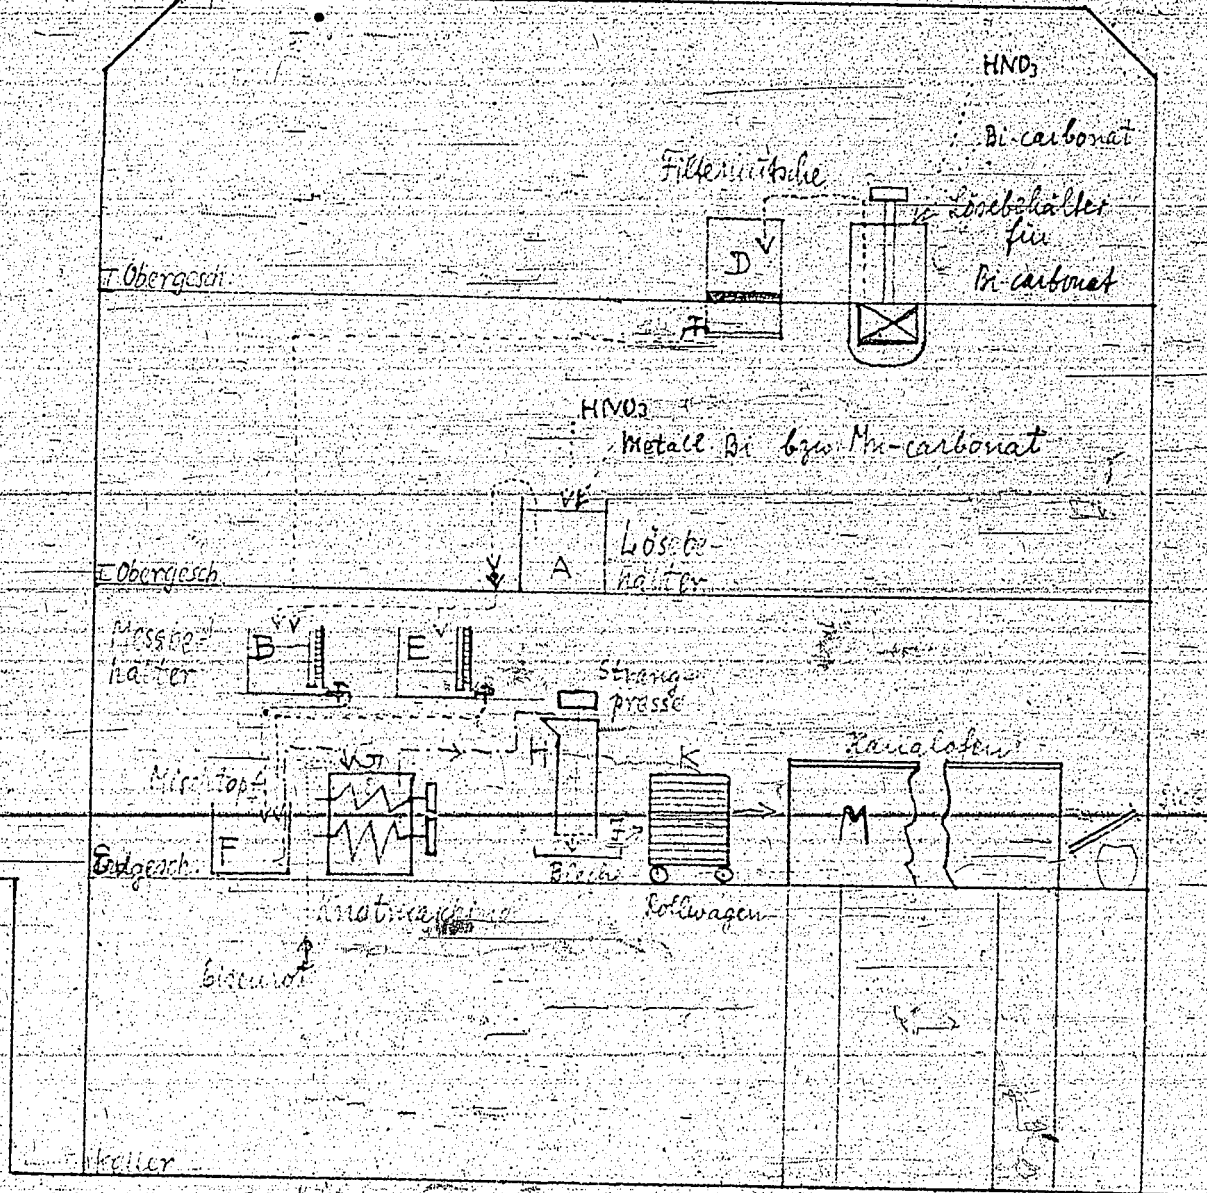 HNO₃
Bi-carbonat
Filternutsche
Lösebehälter
für
Bi-carbonat
D
I Obergesch.
HNO₃
Metall Bi bzw. Mn-carbonat
A
Lösebe-
hälter
I Obergesch.
Messbe-
hälter
B
E
Strang-
presse
H
K
Kanalofen
Mischtopf
G
F
M
Erdgesch.
Blech
Knetmaschine
Rollwagen
Keller